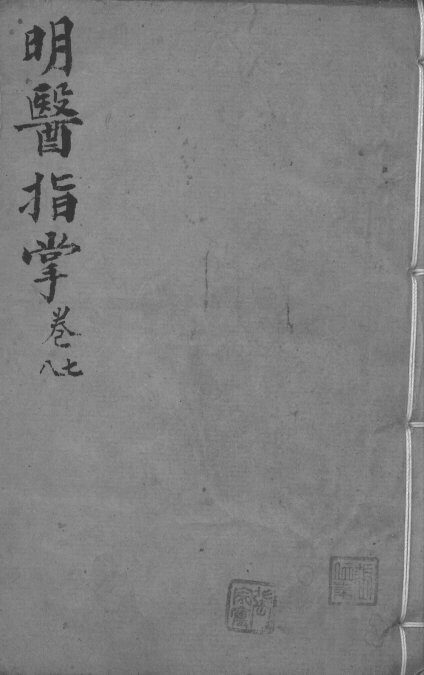 明醫指掌
卷
七八